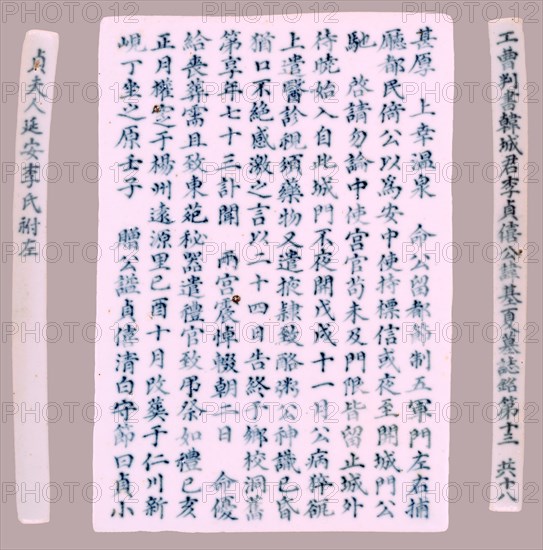 工曹判書韓城君李貞僖公諱基夏墓誌銘 第十三 共十八
甚厚 上幸溫泉 命公留都節制五軍門左右捕
廳都民倚公以爲安中使持標信或夜至開城門公
馳 啓請勿論中使宮官苟未及門限皆留止城外
待曉始入自此城門不夜開戊戌十一月公病猝
上遣醫診視頒藥物又遣掖隷致酪粥公神識已昏
猶口不絶感激之言以二十四日告終于鄕校洞舊
第享年七十三訃聞 兩宮震悼輟朝二日 命優
給喪葬需且致東苑秘器遣禮官致弔祭如禮己亥
正月權窆于楊州遠源里己酉十月改葬于仁川新
峴丁坐之原壬子 贈公諡貞僖淸白守節曰貞小
貞夫人延安李氏祔左